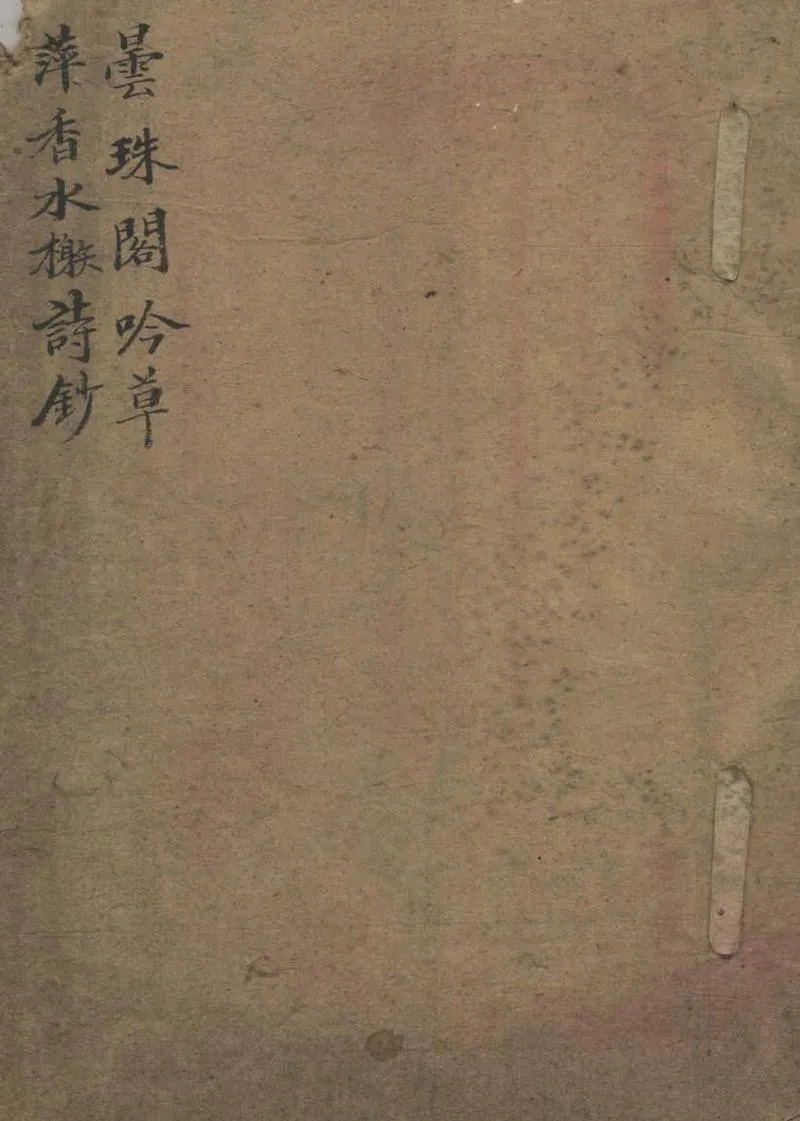 曇珠閣吟草
萍香水榭詩鈔